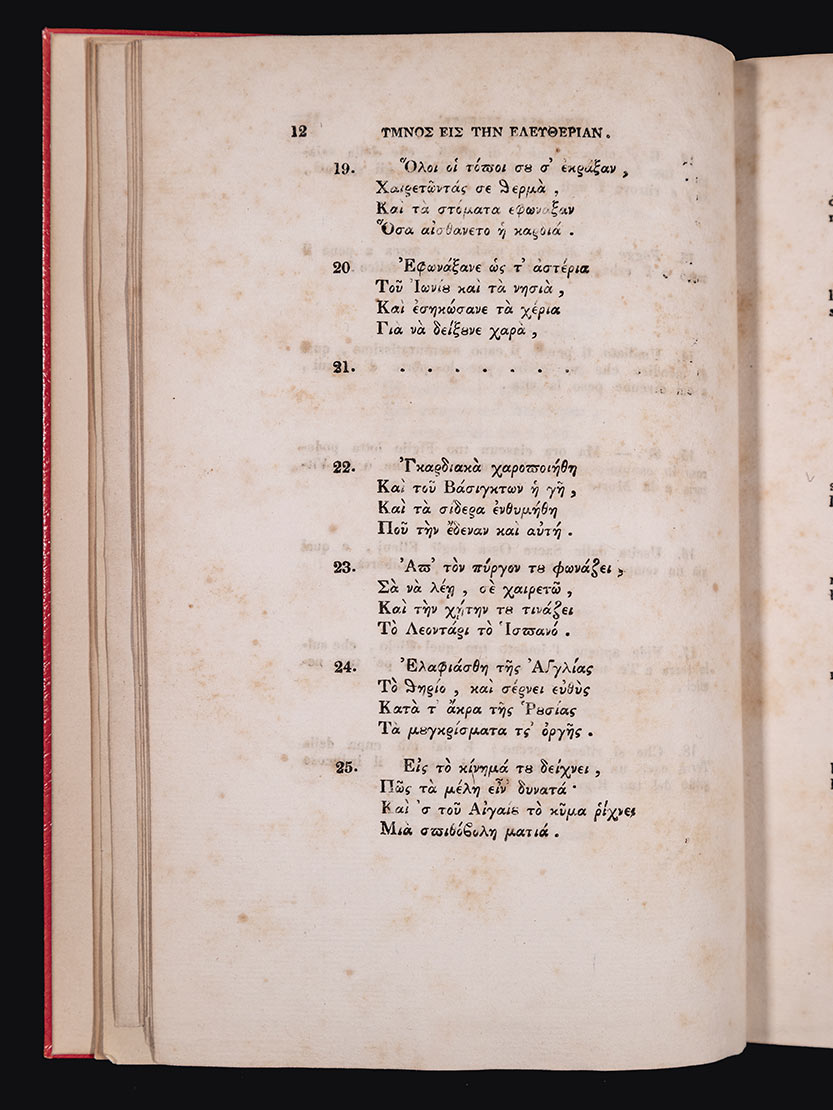 12 ΥΜΝΟΣ ΕΙΣ ΤΗΝ ΕΛΕΥΘΕΡΙΑΝ.
19. Ὅλοι οἱ τόποι σȣ σ' ἐκράξαν,
Χαιρετῶντάς σε θερμὰ,
Καὶ τὰ στόματα ἐφωνάξαν
Ὅσα αἰσθάνετο ἡ καρδιά.
20. Ἐφωνάξανε ὡς τ' ἀστέρια
Τοῦ Ἰωνίȣ καὶ τὰ νησιὰ,
Καὶ ἐσηκώσανε τὰ χέρια
Γιὰ νὰ δείξȣνε χαρὰ,
21. . . . . . . .
22. Ἐγκαρδιακὰ χαροποιήθη
Καὶ τοῦ Βάσιγκτων ἡ γῆ,
Καὶ τὰ σίδερα ἐνθυμήθη
Ποῦ τὴν ἔδεναν καὶ αὐτή.
23. Ἀπ' τὸν πύργον τȣ φωνάζει,
Σὰ νὰ λέῃ, σὲ χαιρετῶ,
Καὶ τὴν χήτην τȣ τινάζει
Τὸ Λεοντάρι τὸ Ἱσπανό.
24. Ἐλαφιάσθη τῆς Ἀγγλίας
Τὸ θηρίο, καὶ σέρνει εὐθὺς
Κατὰ τ' ἄκρα τῆς Ῥȣσίας
Τὰ μȣγκρίσματα τς' ὀργῆς.
25. Εἰς τὸ κίνημά τȣ δείχνει,
Πῶς τὰ μέλη εἶν' δυνατά·
Καὶ 'ς τοῦ Αἰγαίȣ τὸ κῦμα ῥίχνει
Μιὰ σπιθόβολη ματιά.